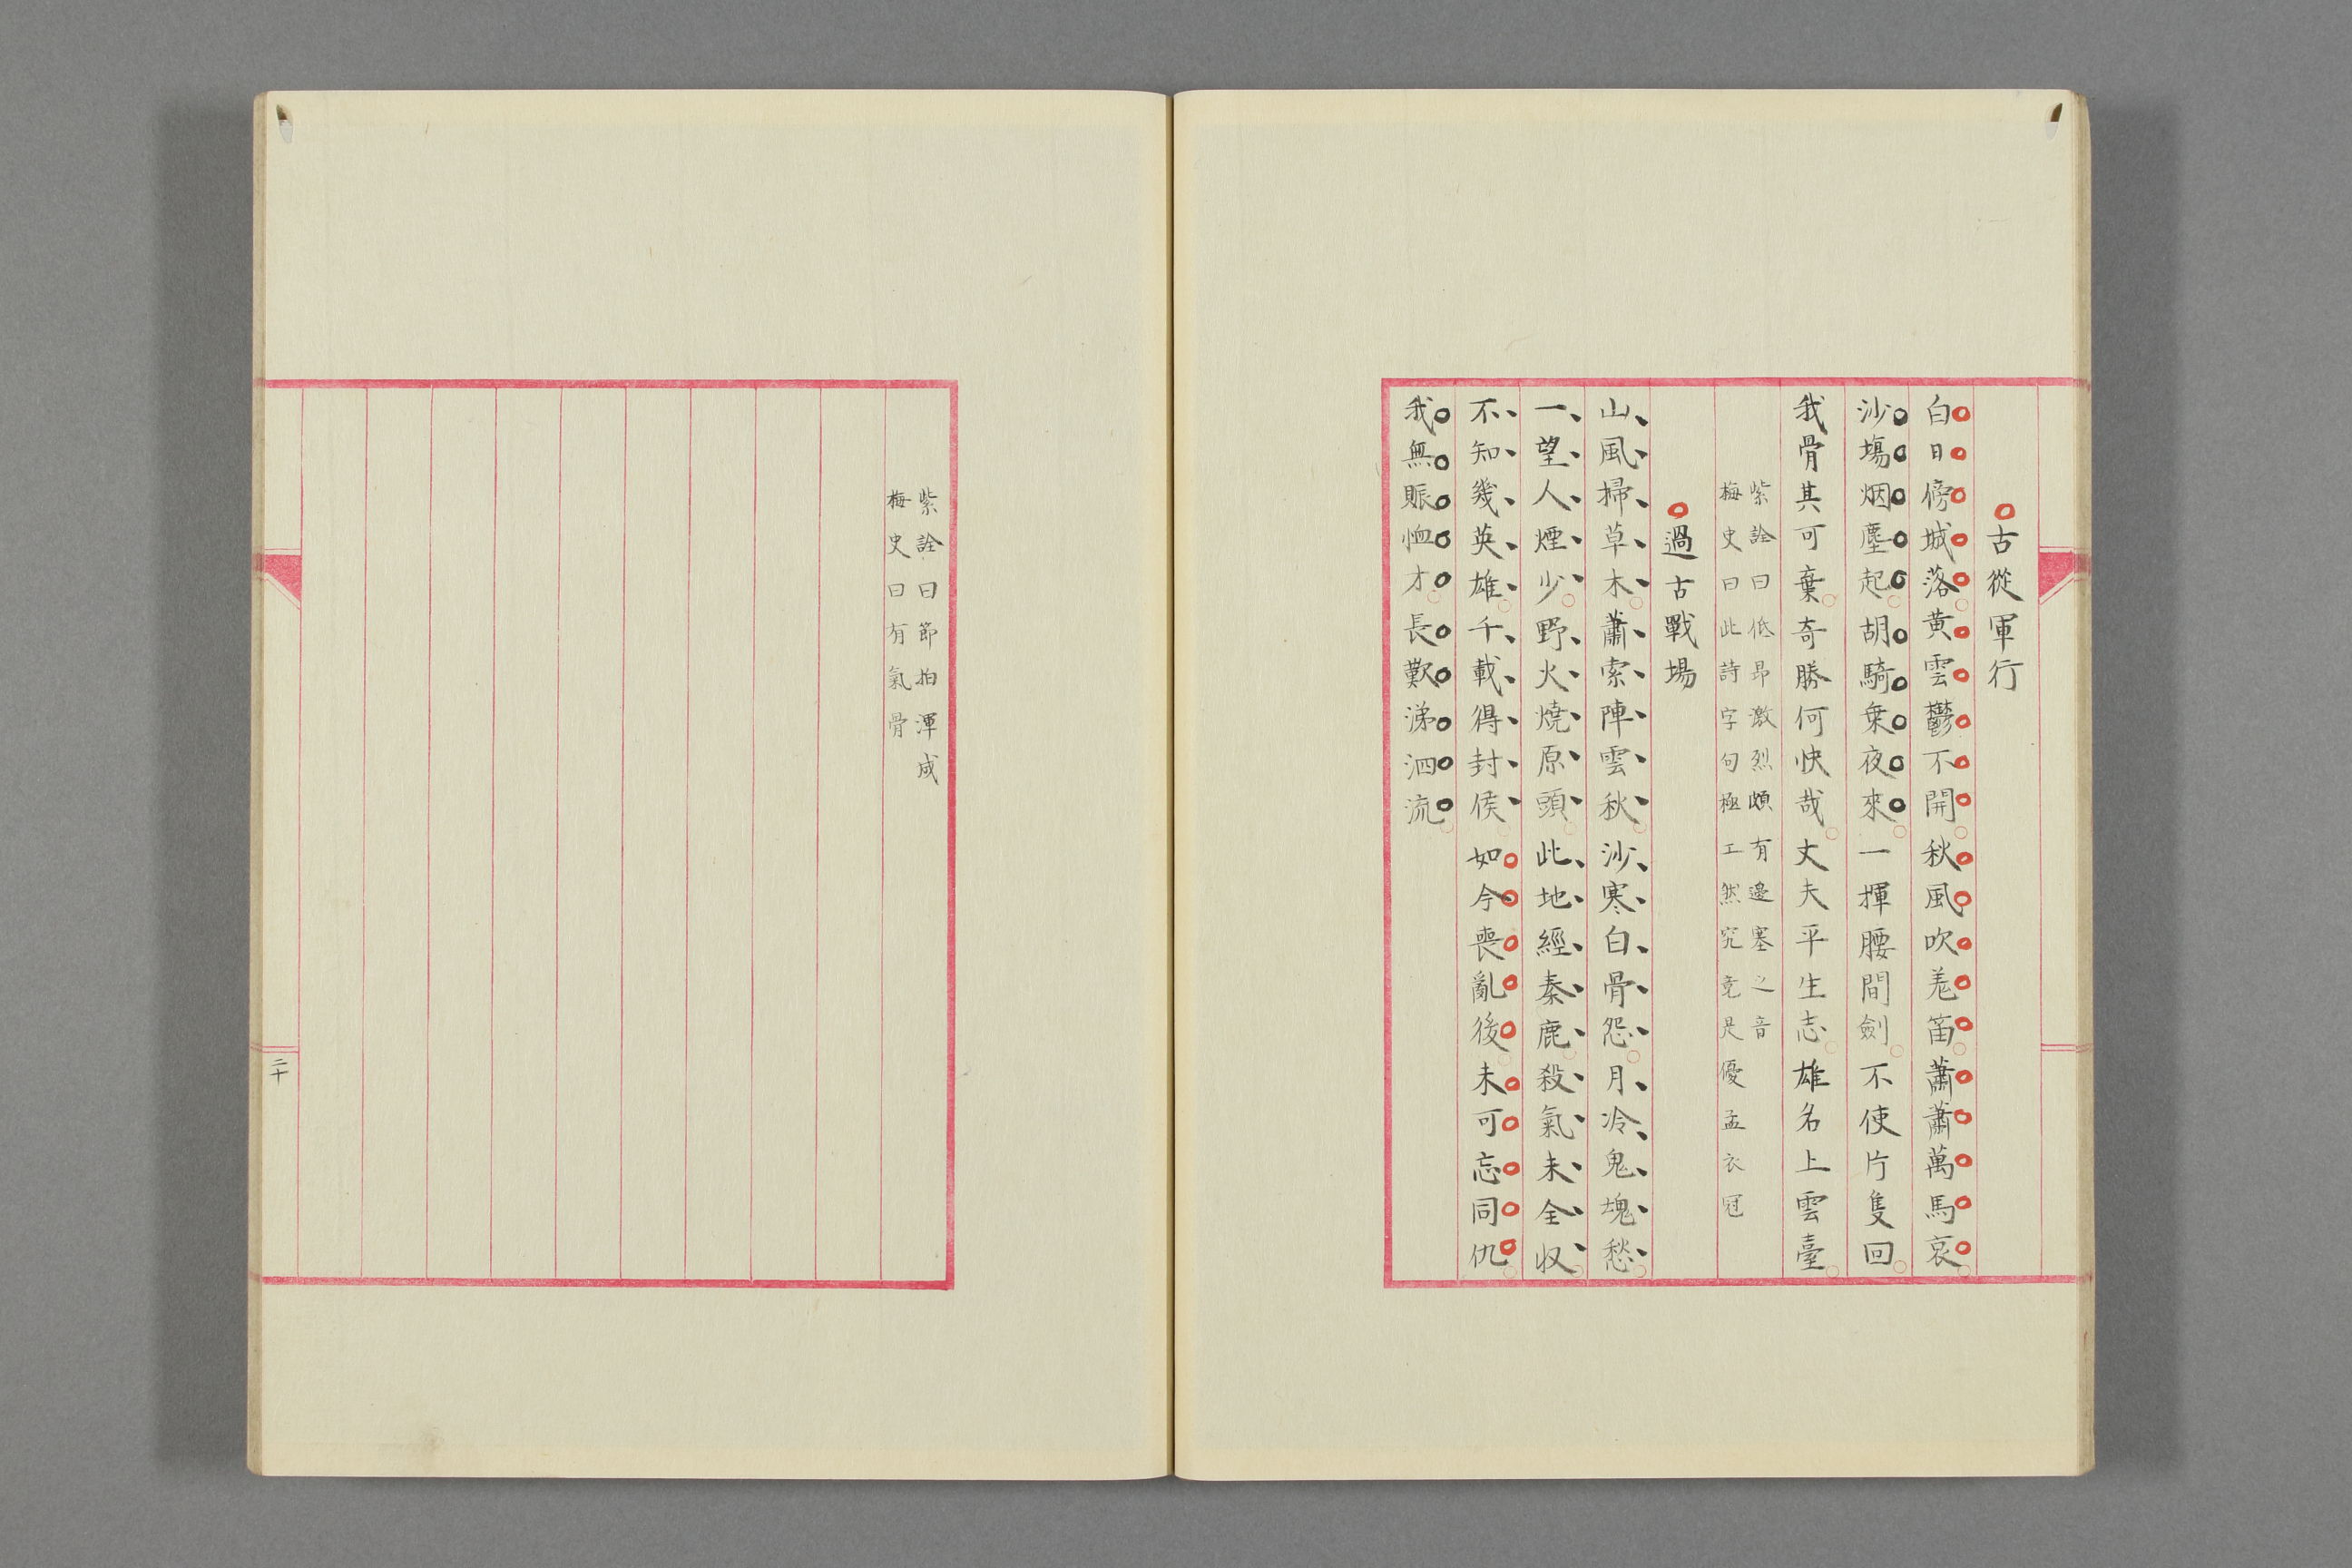 古從軍行
白日傍城落黃雲鬱不開秋風吹羗笛蕭蕭萬馬哀
沙塲烟塵起胡騎乗夜來一揮腰間劍不使片隻回
我骨其可棄奇勝何快哉丈夫平生志雄名上雲臺
紫詮曰低昂激烈頗有邊塞之音
梅史曰此詩字句極工然究竟是優孟衣冠
過古戰場
山風掃草木蕭索陣雲秋沙寒白骨怨月冷鬼塊愁
一望人煙少野火燒原頭此地經秦鹿殺氣未全収
不知幾英雄千載得封侯如今喪亂後未可忘同仇
我無賑恤才長歎涕泗流
紫詮曰節拍渾成
梅史曰有氣骨
二十